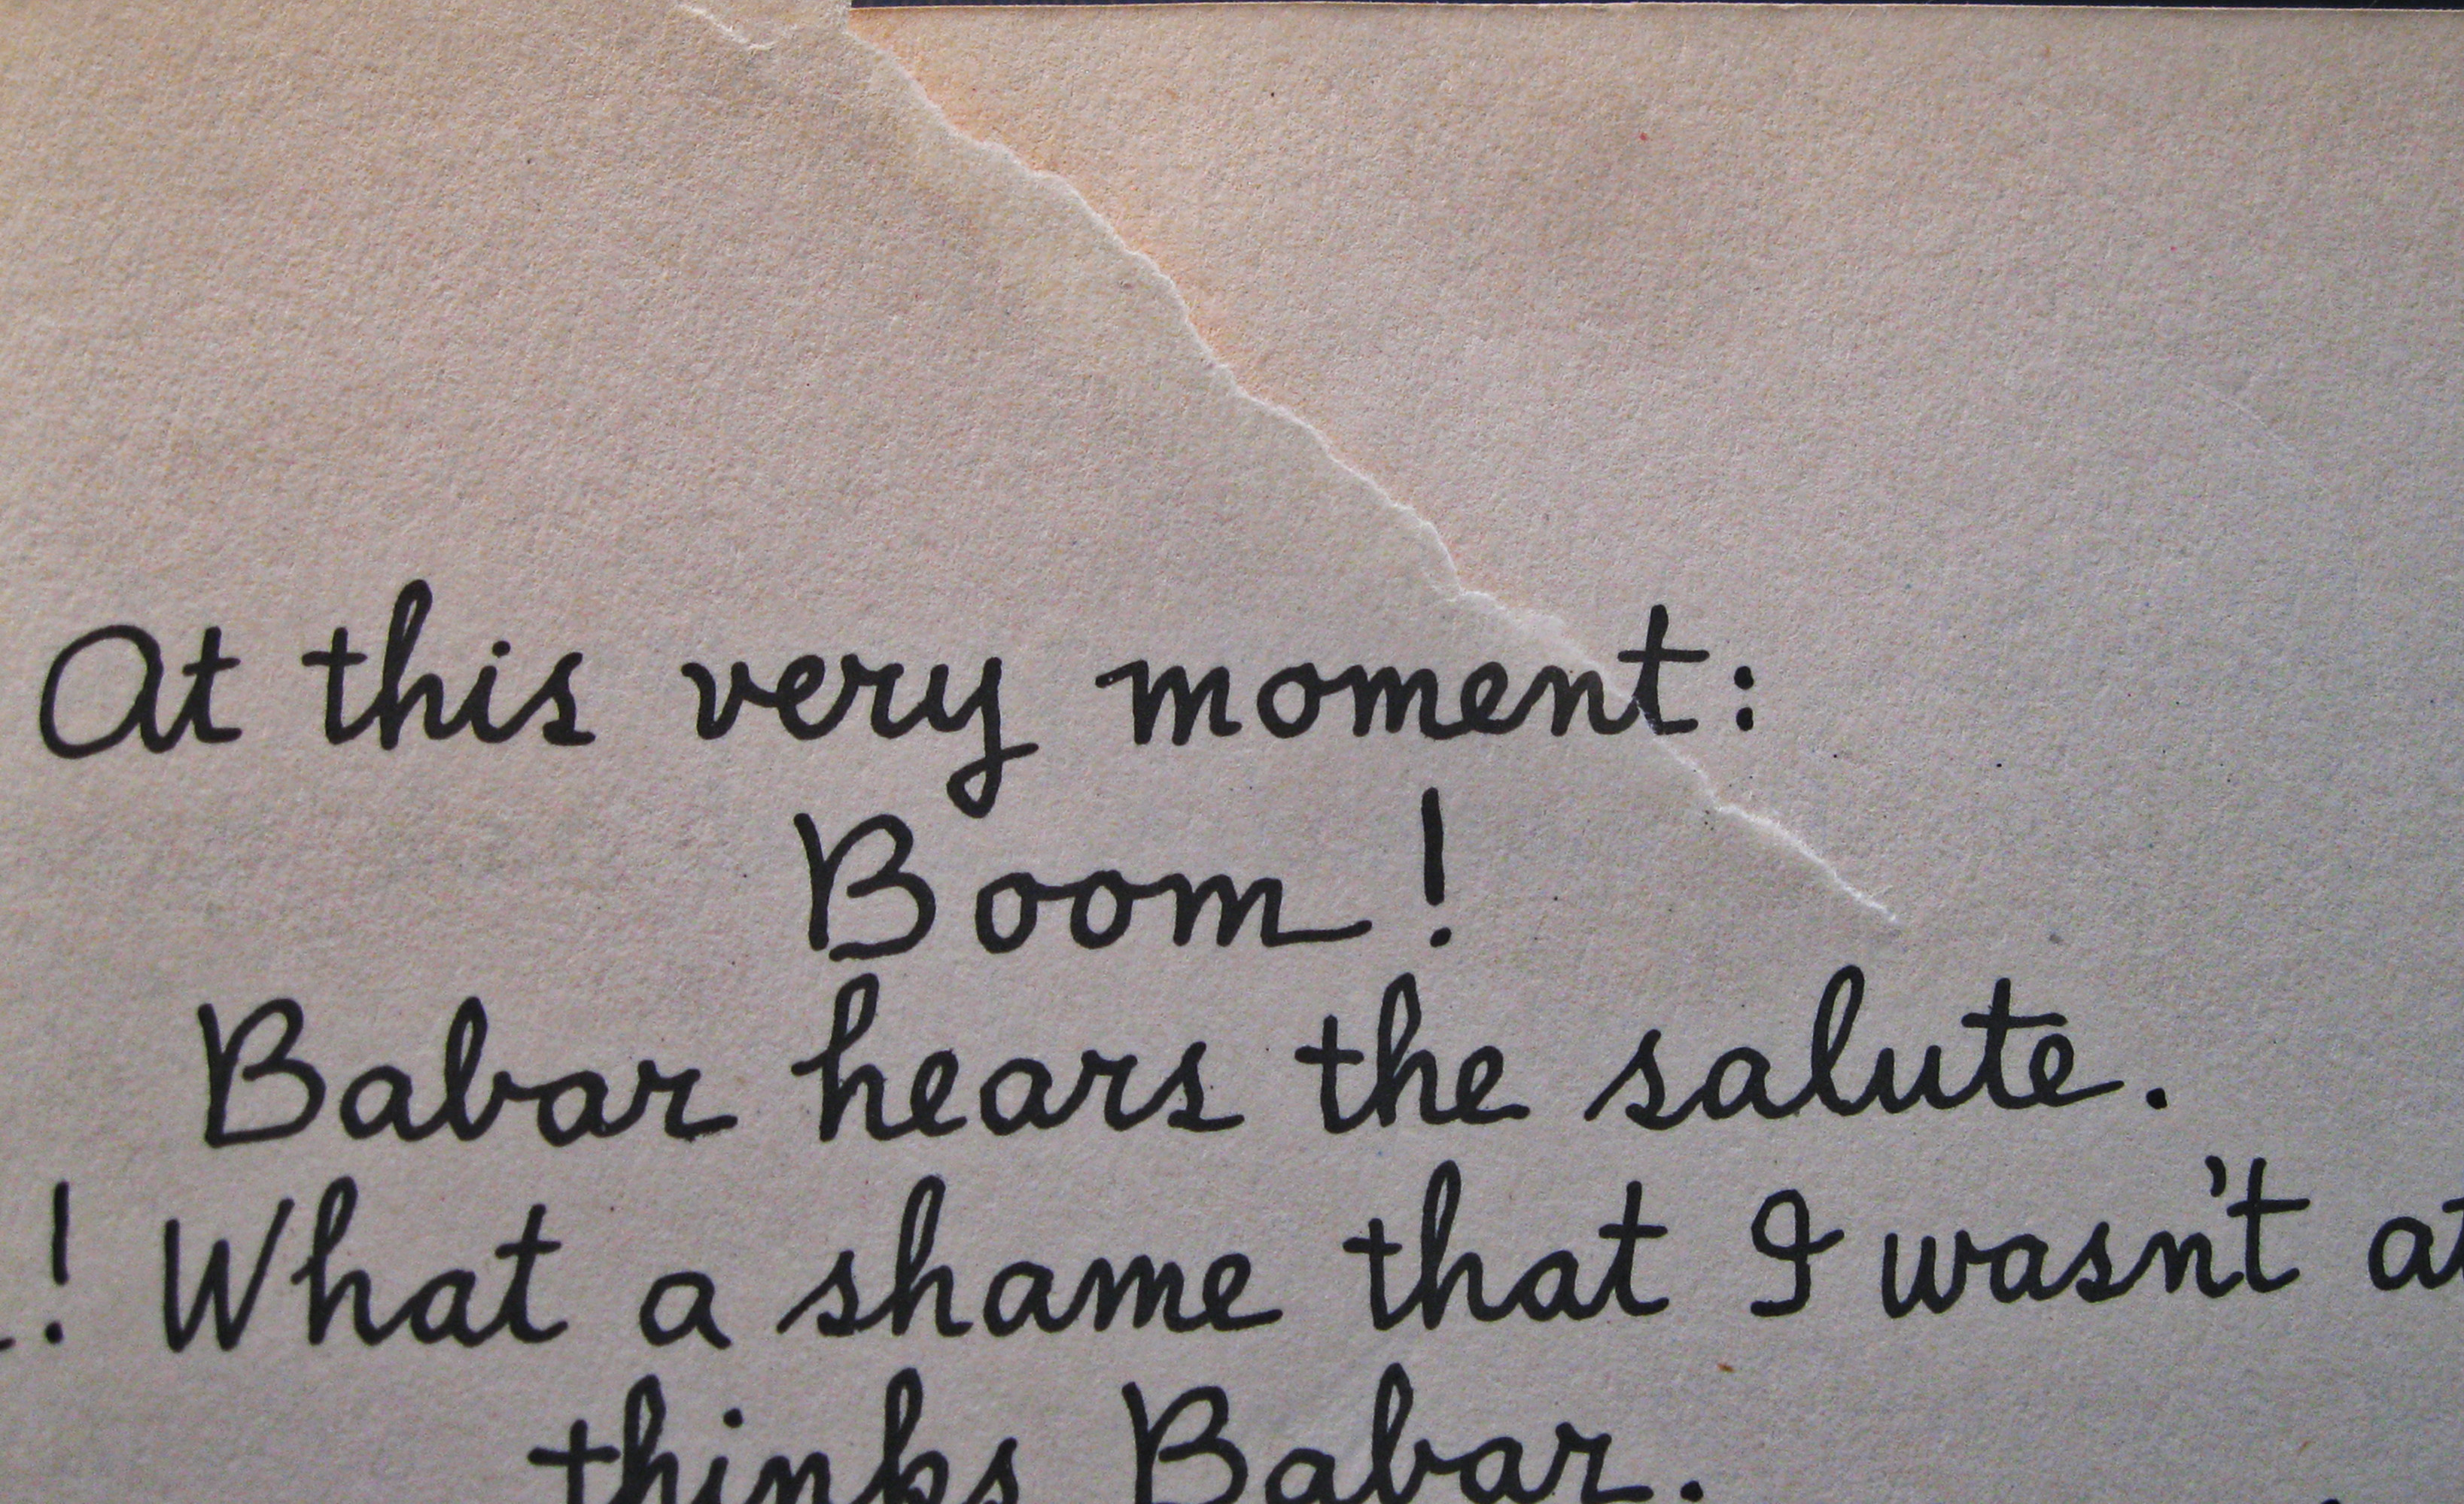 At this very moment:
Boom!
Babar hears the salute.
! What a shame that I wasn't at
thinks Babar.